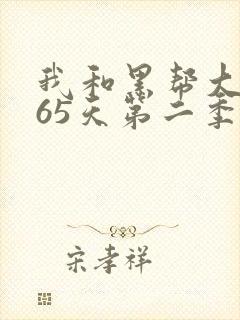 我和黑帮大
65天第二季
宋孝祥